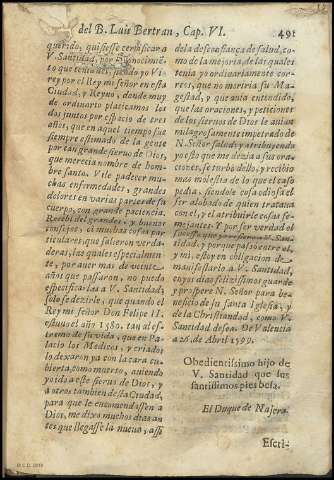 del B. Luis Bertran, Cap. VI.
491
querido, quisiesse certificar a
V. Santidad, por el conocimiē
to que tenia del, siendo yo Vi
rey por el Rey mi señor en esta
Ciudad, y Reyno, donde muy
de ordinario platicamos los
dos juntos por espacio de tres
años, que en aquel tiempo fue
siempre estimado de la gente
por tan grande sieruo de Dios,
que merecia nombre de hom-
bre santo. Vile padecer mu-
chas enfermedades, grandes
dolores en varias partes de su
cuerpo, con grande paciencia.
Recebi del grandes, y buenos
consejos, oì muchas cosas par
ticulares, que salieron verda-
deras, las quales especialmen-
te, por auer mas de veinte
años que passaron, no puedo
especificarlas a V. Santidad,
solo se dezirle, que quando el
Rey mi señor Don Felipe II.
estuuo el año 1580. tan al es-
tremo de su vida, que en Pa-
lacio los Medicos, y criados
lo dexaron ya con la cara cu-
bierta, como muerto, auiendo
yo ido a este sieruo de Dios, y
a otros tambien desta Ciudad,
para que le encomendassen a
Dios, me dixo muchos dias an
tes que llegasse la nueua, assi
de la desconfiança de salud, co-
mo de la mejoria, de las quales
tenia yo ordinariamente cor-
reos, que no moriria su Ma-
gestad, y que auia entendido,
que las oraciones, y peticiones
de los sieruos de Dios le auian
milagrosamente impetrado de
N. Señor salud; y atribuyendo
yo esto que me dezia a sus ora-
ciones, se turbò dello, y recibio
mas molestia de lo que el caso
pedia, siendole cosa odiosa el
ser alabado de quien trataua
con el, y el atribuirle cosas se-
mejantes. Y por ser verdad el
y mi, estoy en obligacion de
manifestarlo a V. Santidad,
cuyos dias felizissimos guarde
y prospere N. Señor para be-
neficio de su santa Iglesia, y
de la Christiandad, como V.
Santidad desea. De Valencia
a 26. de Abril 1599.
Obedientissimo hijo de
V. Santidad que sus
santissimos pies besa.
El Duque de Najera.
Escri-